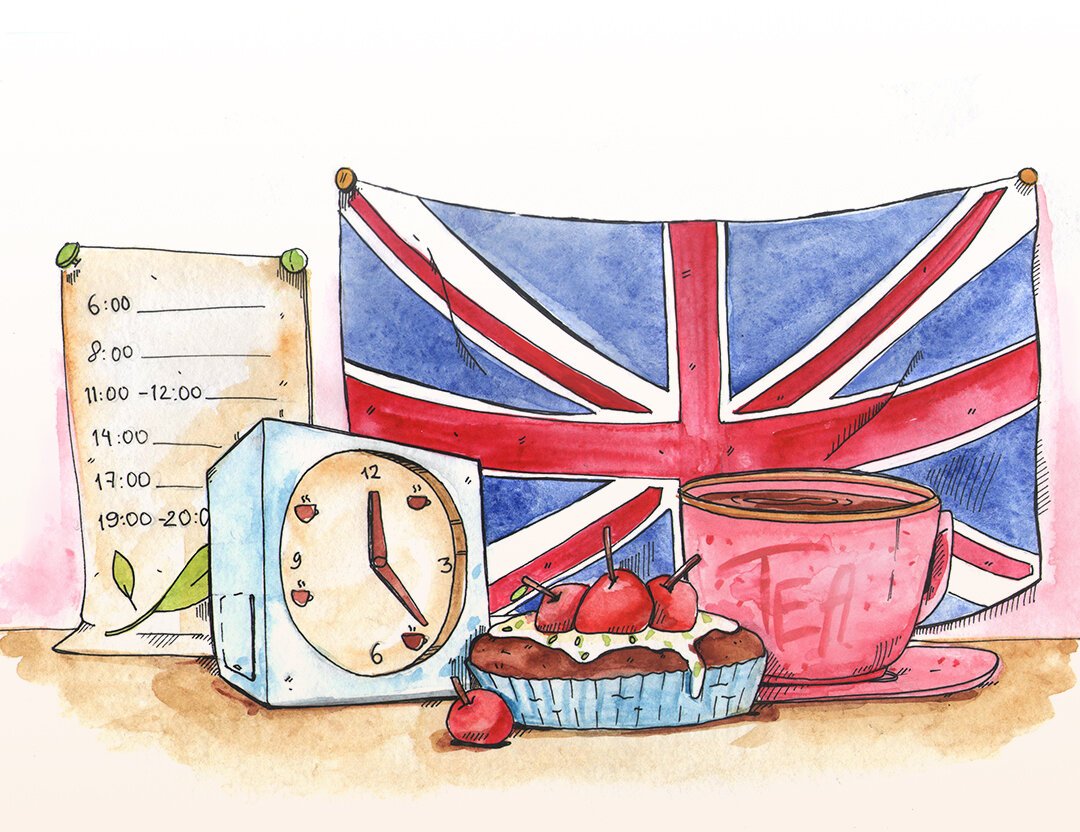 6:00
8:00
11:00 -12:00
14:00
17:00
19:00-20:0
12
3
6
9
TEA